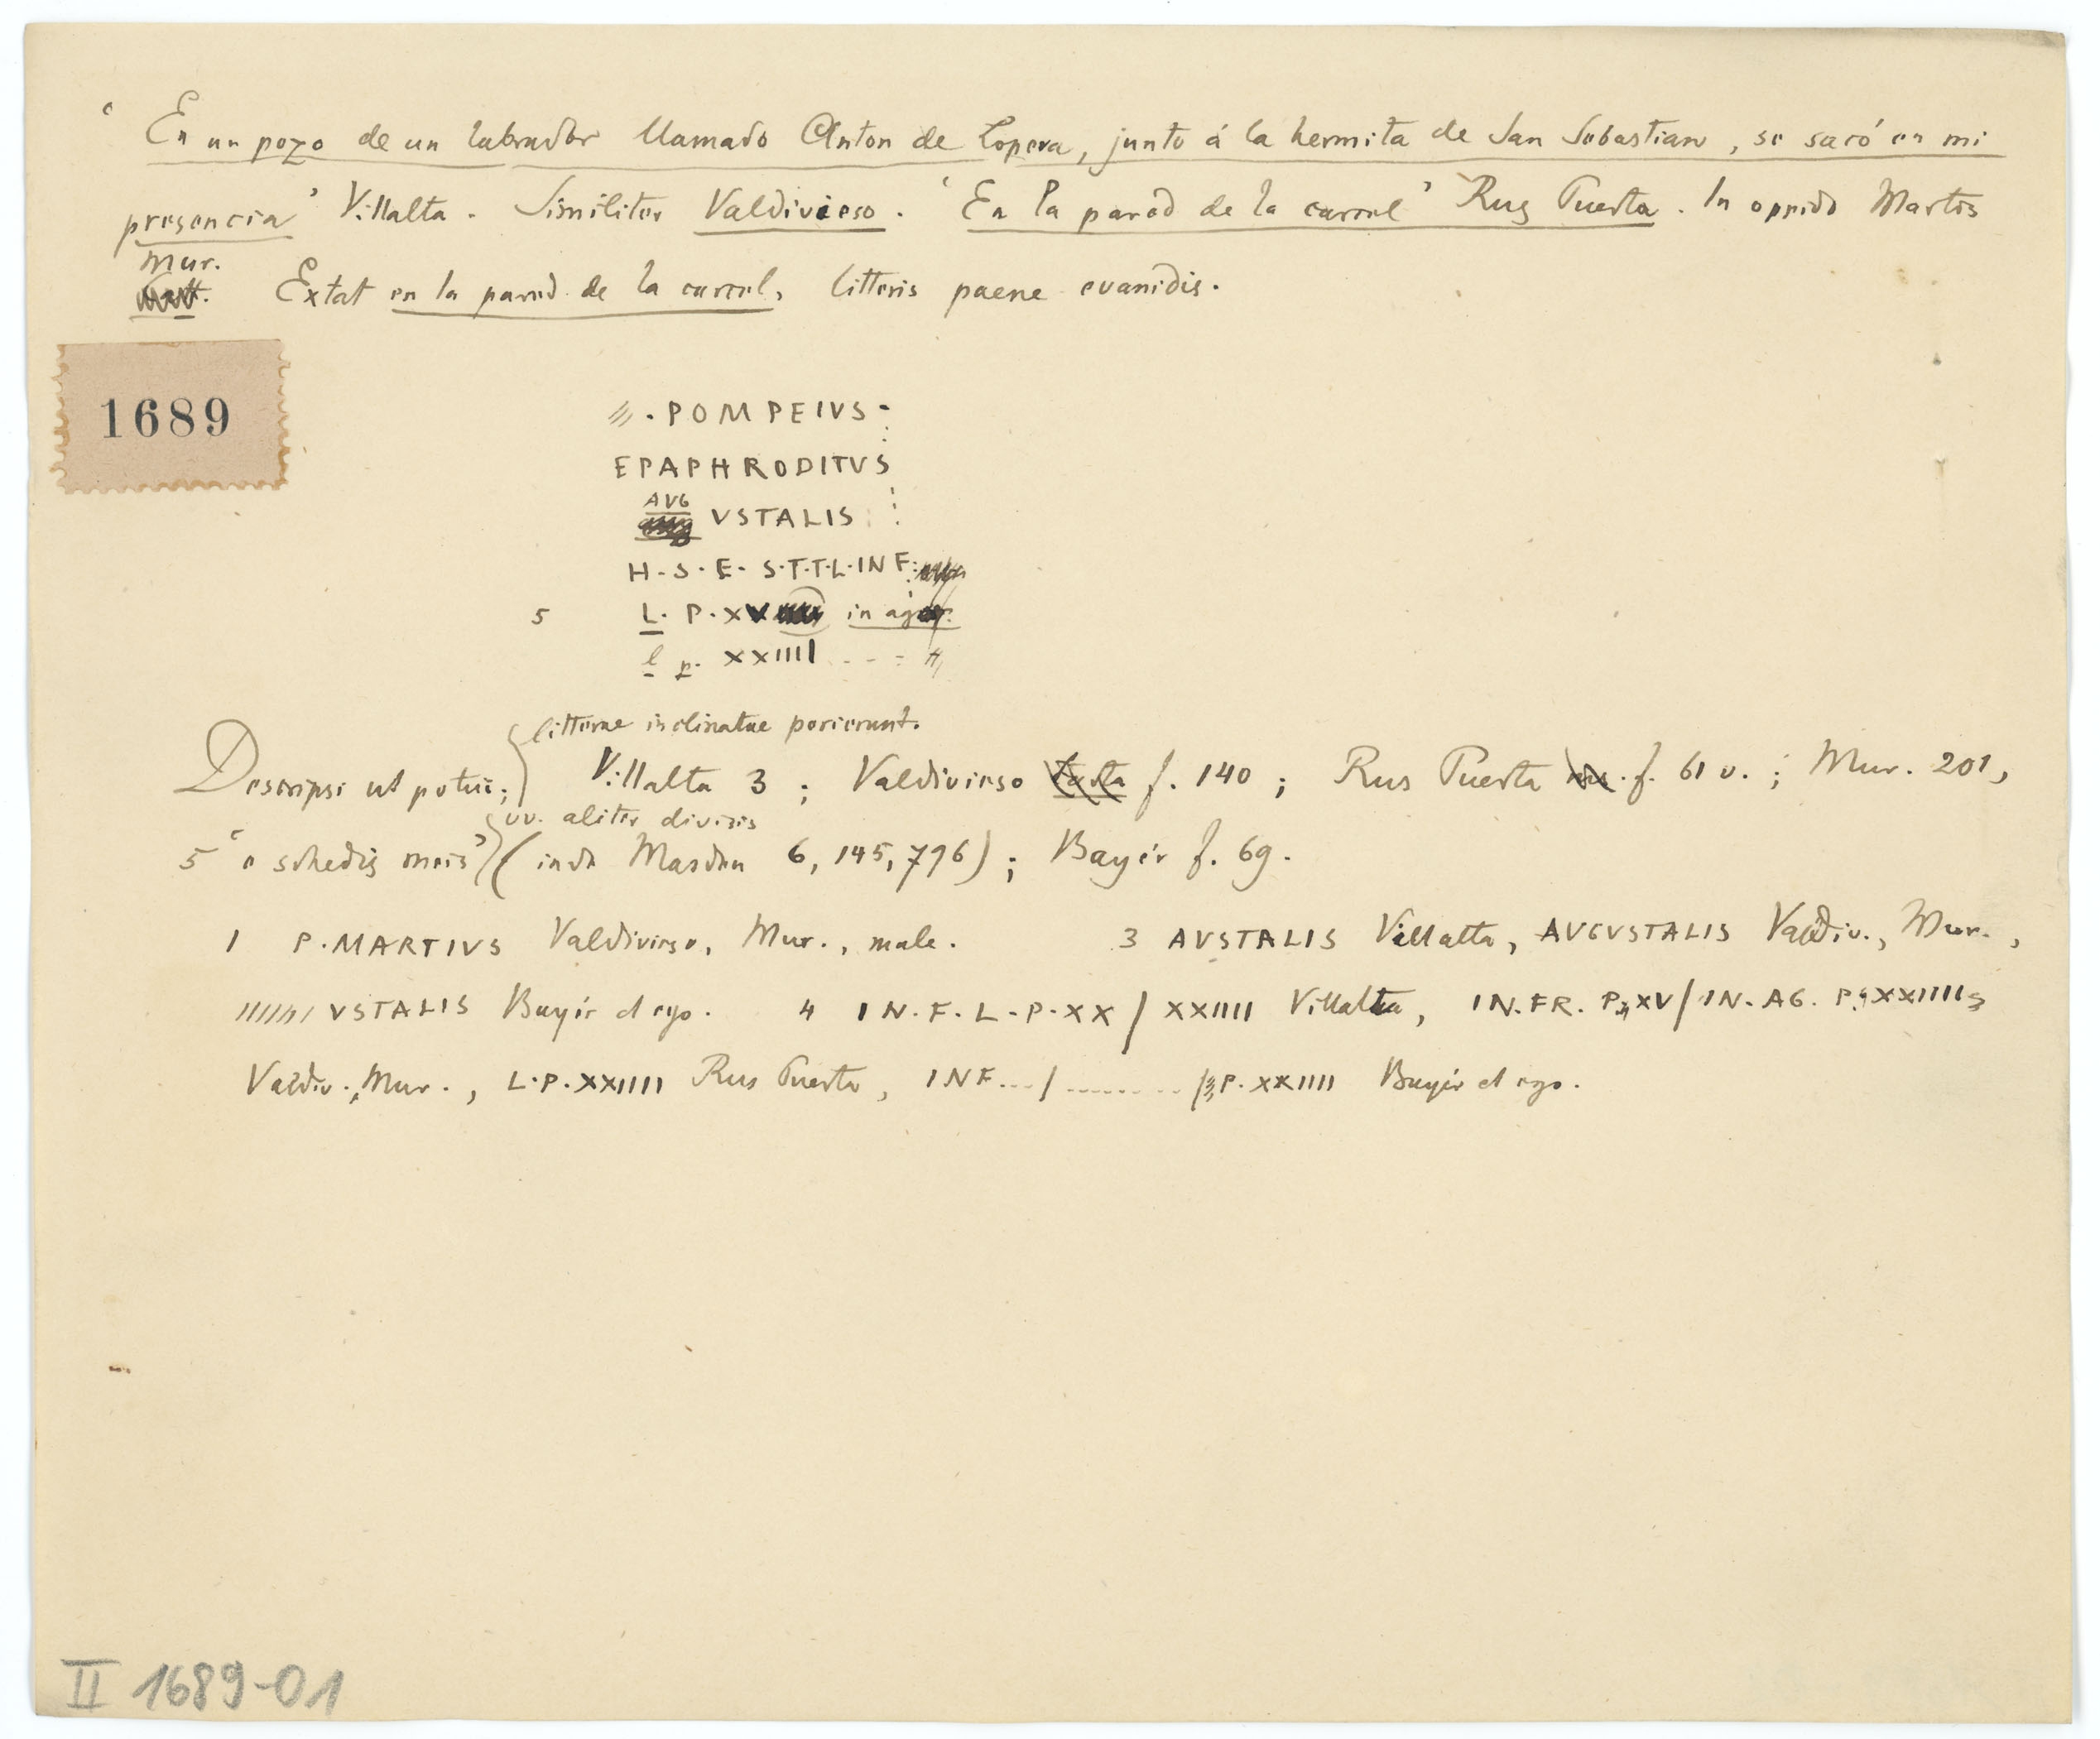 ‘En un pozo de un labrador llamado Anton de Lopera, junto á la hermita de San Sebastian, se sacó en mi
presencia’ Villalta. Similiter Valdivieso. ‘En la pared de la carcel’ Rus Puerta. In oppido Martos
Mur.
Extat en la pared de la carcel, litteris paene evanidis.
1689
. POMPEIVS
EPAPHRODITVS
AVG
VSTALIS
H. S. E. S.T.T.L.IN F
5 L. P. XV in agr.
l p. XXIIII
litterae inclinatae perierunt.
Descripsi ut potui; Villalta 3; Valdivieso f. 140; Rus Puerta f. 61 v.; Mur. 201,
vv. aliter divisis
5 ‘e schedis meis’ (inde Masdeu 6, 145, 796); Bayer f. 69.
1 P. MARTIVS Valdivieso, Mur., male. 3 AVSTALIS Villalta, AVGVSTALIS Valdiv., Mur.,
////// VSTALIS Bayer et ego. 4 IN. F. L. P. XX / XXIIII Villalta, IN. FR. P. XV / IN. AG. P. XXIIII
Valdiv., Mur., L. P. XXIIII Rus Puerta, INF... / ........ / P. XXIIII Bayer et ego.
II 1689-01